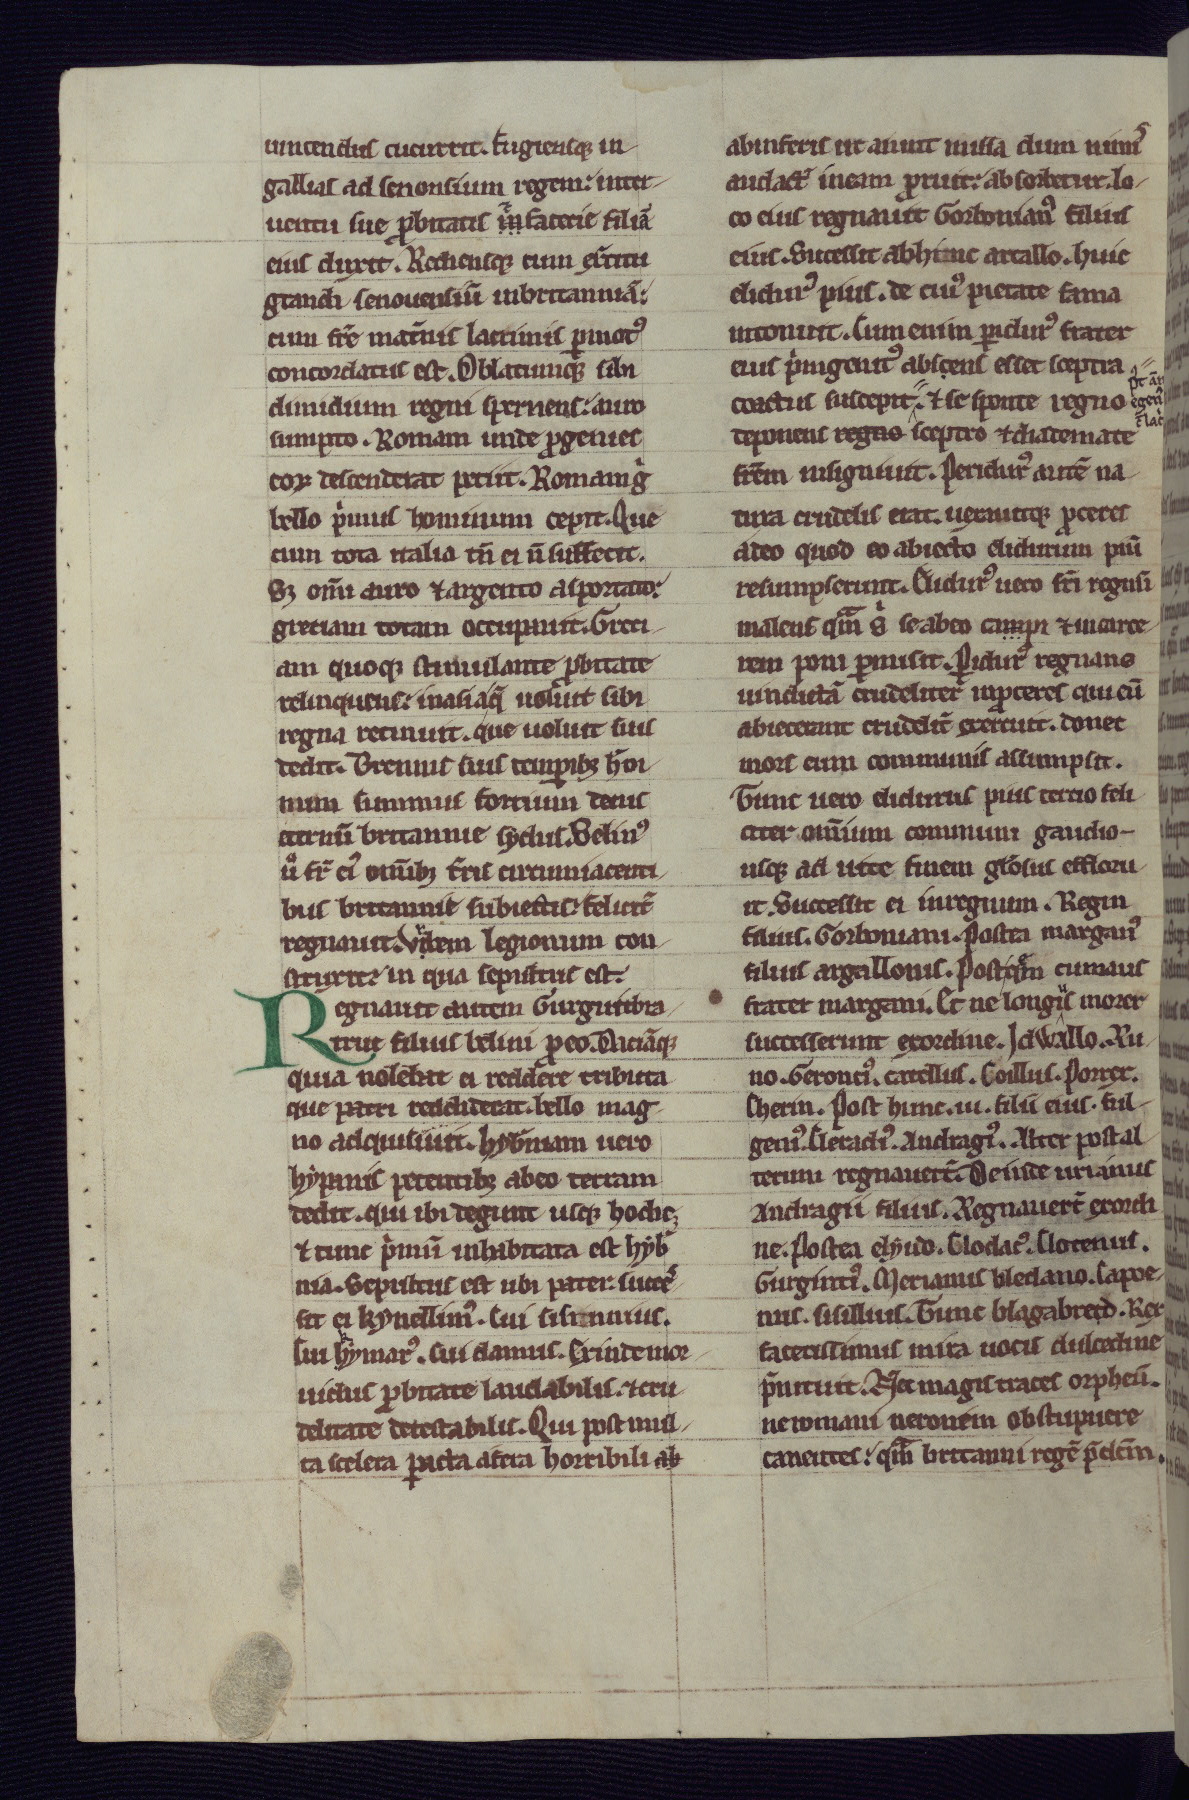 uincendus cucurrit. fugiensq; in
gallias ad senonsium regem: inter-
uentu sue p̱bitatis ... facecie filiā
eius duxit. Rediensq; cum exc̄itu
grandi senouensiū inbritanniā:
cum fr̄e mat̄nis lacrimis ꝑmotꝰ
concordatus est. Oblatumq; sibi
dimidium regni spernens: auro
sumpto. Romam unde ꝓgenies
eoꝝ descenderat petiit. Romam g̍
bello p̍mus hominum cepit. Que
cum tota italia tn̄ ei n̄ suffecit.
Sꝫ om̄i auro ⁊ argento asportato:
greciam totam occupauit. Greci-
am quoq; stimulante ꝓbitate
relinquens: inasia q̄ uoluit sibi
regna retinuit. que uoluit suis
dedit. Brennus suis tempib; hōi-
num summus fortium decus
eternū britannie sydus. Belinꝰ
u̍ fr̄ eiꝰ om̄ib; t̄ris circumiacenti-
bus britannie subiectis: felicit̄
regnauit. Vrbem legionum con-
struxit: in qua sepultus est.
Regnauit autem Gurguitbra-
trut filius belini ꝓ eo. Daciāq;
quia nolebat ei reddere tributa
que patri reddiderat. bello mag-
no adquisiuit. hyb̄niam uero
hyspanis petentib; abeo terram
dedit. qui ibi degunt usq; hodie;
⁊ tunc p̍mū inhabitata est hyb̄
nia. Sepultus est ubi pater. succes
sit ei kynellimꝰ. Cui sisinnius.
Cui kymarꝰ. cui damus. Exinde mor-
uidus ꝓbitate laudabilis. ⁊ cru-
delitate detestabilis. Qui post mul-
ta scelera ꝑacta afera horribili ab
abinferis ut aiunt missa dum nimiꝰ
audact̄ ineam ꝓruit: absorbetur. lo-
co eius regnauit Gorbonianꝰ filius
eius. Sucessit abhinc artallo. huic
elidurꝰ pius. de cuiꝰ pietate fama
intonuit. Cum enim p̄durꝰ frater
eius p̍mgenitꝰ absens esset sceptra
coactus suscepit. ⁊ se sponte regno
deponens regno sceptro ⁊ diademate
frēm insigniuit. Peridurꝰ autē na-
tura crudelis erat. uexauitq; ꝓceres
adeo quod eo abiecto elidurum piū
resumpserunt. Elidurꝰ uero fr̄i regnū
malens qm̄ s̍ se abeo campi ⁊ incarce
rem poni ꝑmisit. Pidurꝰ regnans
uindictā crudeliter inꝓceres qui eū
abiecerant crudelit̄ exercuit. donec
mors eum communis assumpsit.
Tunc uero elidurus pius tercio feli
citer omnium communi gaudio-
usq; ad uite finem gl̄osus efforu-
it. Successit ei inregnum. Regin
filius. Gorboniani. Postea marganꝰ
filius argallonis. Postq̄m eumaus
frater margani. Et ne longiꝰ morer
successerunt exordine. Idwallo. Ru-
no. Geronciꝰ. catellus. Coillus. Porrex.
Cherin. Post hunc .iii. filii eius. ful-
geniꝰ. Eleradiꝰ. Andragiꝰ. Alter post al-
terum regnauer̄t. Deinde urianus
Andragii filius. Regnauer̄t exordi
ne. Postea elyud. Clodacꝰ. Clotenus.
Gurgintiꝰ. Merianus bledano. Capoe-
nus. sisillius. Tunc blagabred. Rex
facetissimus mira uocis dulcedine
p̄nituit. Nec magis traces orpheū.
ne romani neronem obstupuere
canentes: qm̄ britanni regē p̄dc̄m.